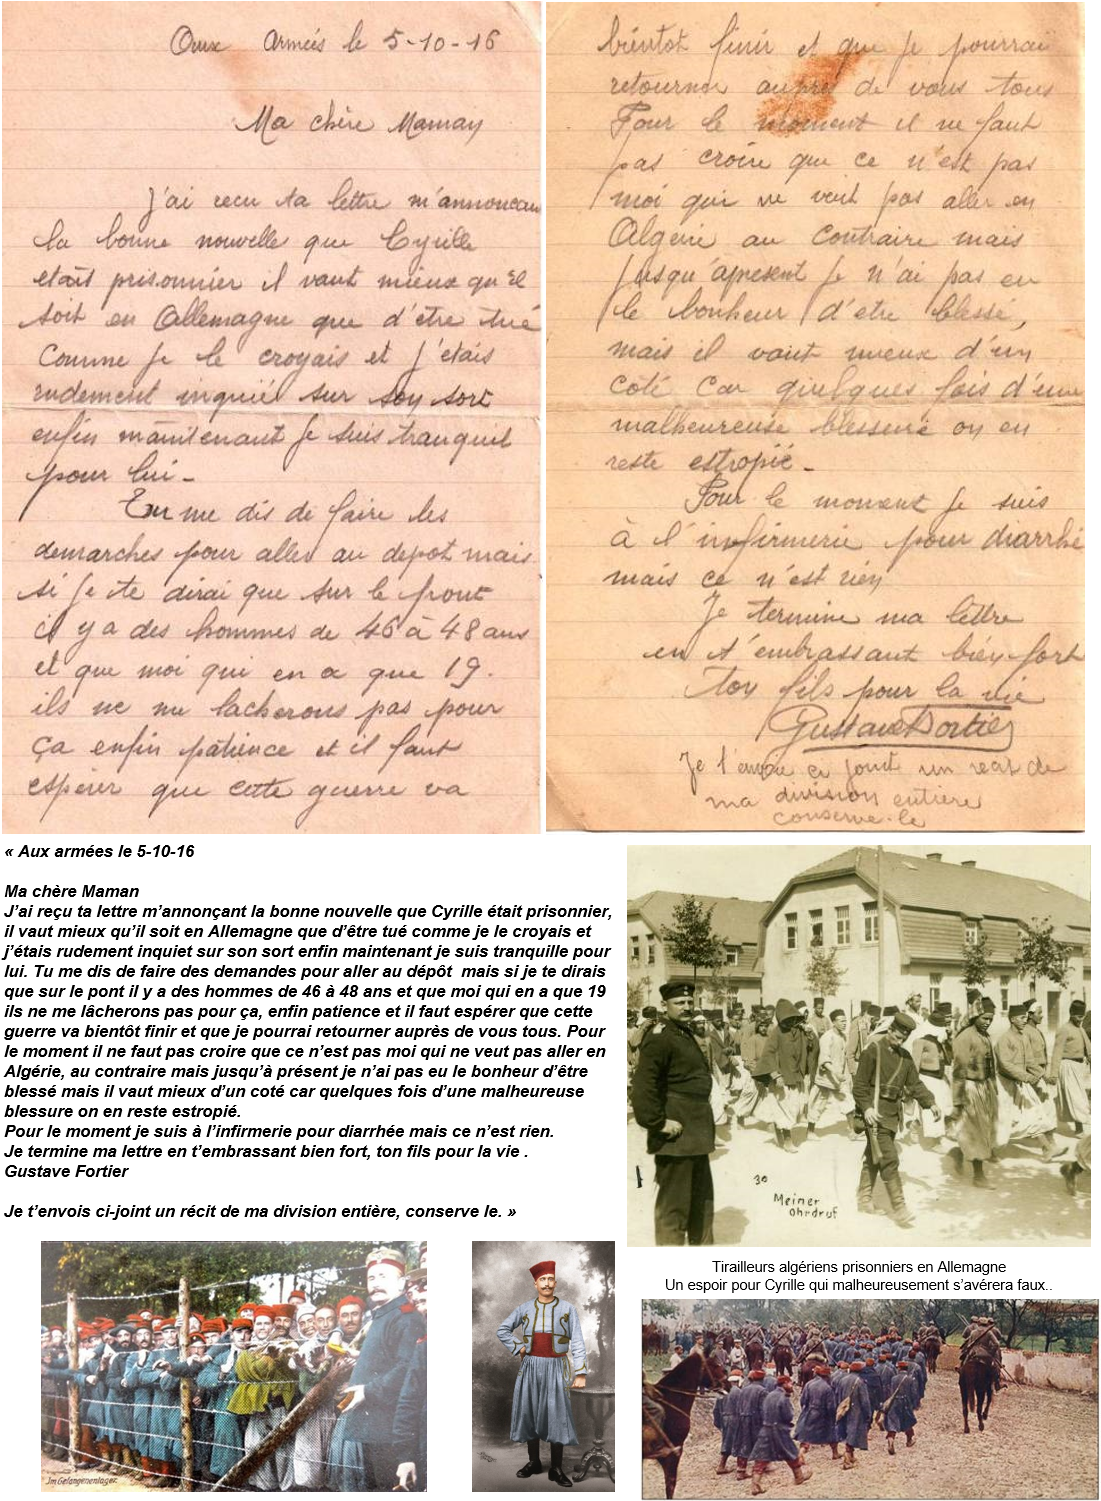 Aux Armées le 5-10-16
Ma chère Maman
J'ai recu ta lettre m'annoncan
la bonne nouvelle que Cyrille
etait prisonnier il vaut mieux qu'il
soit en Allemagne que d'être tué
comme je le croyais et j'étais
rudement inquié sur son sort
enfin maintenant je suis tranquil
pour lui -
Tu me dis de faire les
demarches pour aller au depot mais
si je te dirai que sur le front
il y a des hommes de 46 à 48 ans
et que moi qui en a que 19.
ils ne me lacherons pas pour
ça enfin patience et il faut
espérer que cette guerre va
bientot finir et que je pourrai
retourner aupres de vous tous
Pour le moment il ne faut
pas croire que ce n'est pas
moi qui ne veut pas aller en
Algerie au contraire mais
jusqu'apresent je n'ai pas eu
le bonheur d'etre blessé,
mais il vaut mieux d'un
coté car quelques fois d'une
malheureuse blessure on en
reste estropié -
Pour le moment je suis
à l'infirmerie pour diarrhé
mais ce n'est rien
Je termine ma lettre
en t'embrassant bien fort
ton fils pour la vie
Gustave Fortier
Je t'envoie ci joint un recit de
ma division entière
conserve-le
« Aux armées le 5-10-16
Ma chère Maman
J’ai reçu ta lettre m’annonçant la bonne nouvelle que Cyrille était prisonnier,
il vaut mieux qu’il soit en Allemagne que d’être tué comme je le croyais et
j’étais rudement inquiet sur son sort enfin maintenant je suis tranquille pour
lui. Tu me dis de faire des demandes pour aller au dépôt mais si je te dirais
que sur le pont il y a des hommes de 46 à 48 ans et que moi qui en a que 19
ils ne me lâcherons pas pour ça, enfin patience et il faut espérer que cette
guerre va bientôt finir et que je pourrai retourner auprès de vous tous. Pour
le moment il ne faut pas croire que ce n’est pas moi qui ne veut pas aller en
Algérie, au contraire mais jusqu’à présent je n’ai pas eu le bonheur d’être
blessé mais il vaut mieux d’un coté car quelques fois d’une malheureuse
blessure on en reste estropié.
Pour le moment je suis à l’infirmerie pour diarrhée mais ce n’est rien.
Je termine ma lettre en t’embrassant bien fort, ton fils pour la vie .
Gustave Fortier
Je t’envois ci-joint un récit de ma division entière, conserve le. »
30
Meiner
Ohrdruf
Tirailleurs algériens prisonniers en Allemagne
Un espoir pour Cyrille qui malheureusement s’avérera faux..
Im Gefangenenlager.